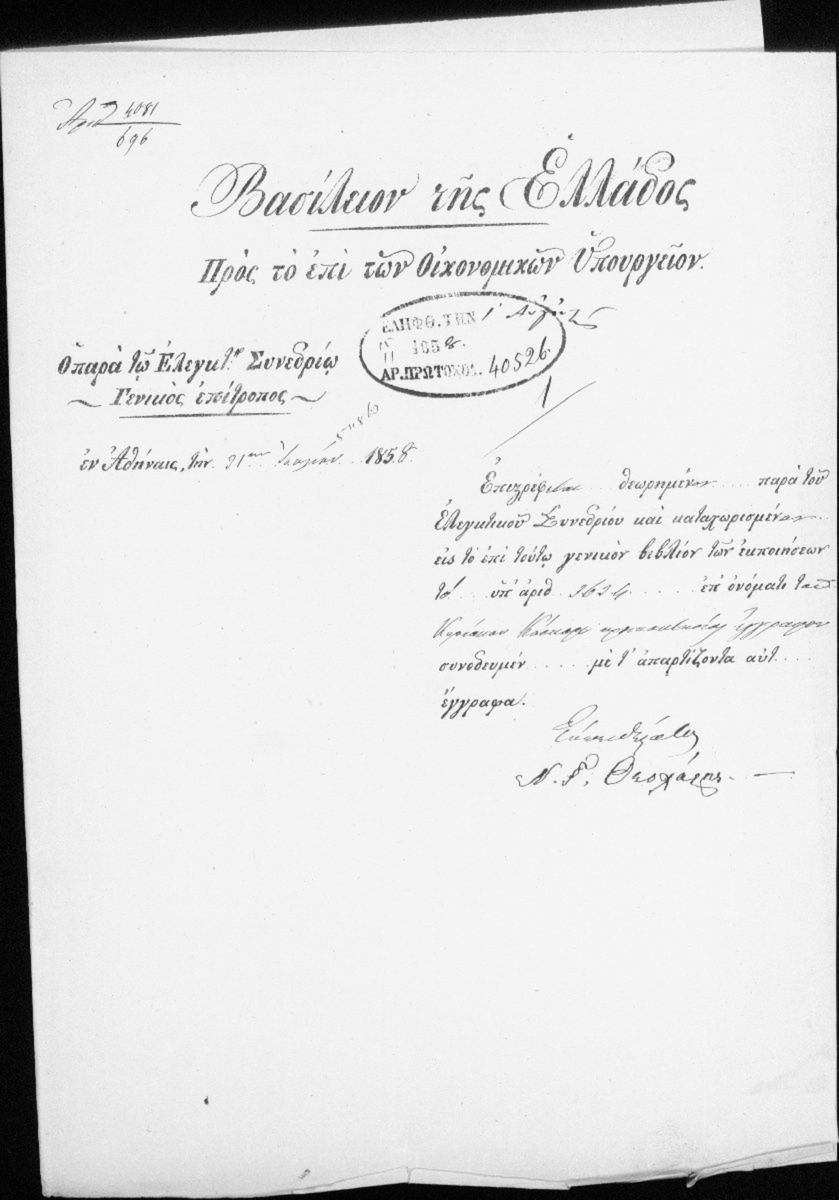 Ἀριθ. 4081
696
Βασίλειον τῆς Ἑλλάδος
Πρὸς τὸ ἐπὶ τῶν Οἰκονομικῶν Ὑπουργεῖον.
ΕΛΗΦΘ. ΤΗΝ 1 Αὐγούτου
1858.
ΑΡ.ΠΡΩΤΟΚΟΛ. 40526
1
Ὁ παρὰ τῷ Ἐλεγκτ.ῷ Συνεδρίῳ
Γενικὸς ἐπίτροπος
ἐν Ἀθήναις, τὴν 31 Ἰουλίου 1858
Ἐπιστρέφεται θεωρημένον παρὰ τοῦ
Ἐλεγκτικοῦ Συνεδρίου καὶ καταχωρισμένον
εἰς τὸ ἐπὶ τούτῳ γενικὸν βιβλίον τῶν ἐκποιήσεων
τὸ ὑπ' ἀριθ. 3634 ἐπ' ὀνόματι τοῦ
Κυριάκου ἔγγραφον
συνοδευμέν.... μὲ τ' ἀπαρτίζοντα αὐτ....
ἔγγραφα.
Εὐπειθέστατος
Ν. Γ. Θεοχάρης